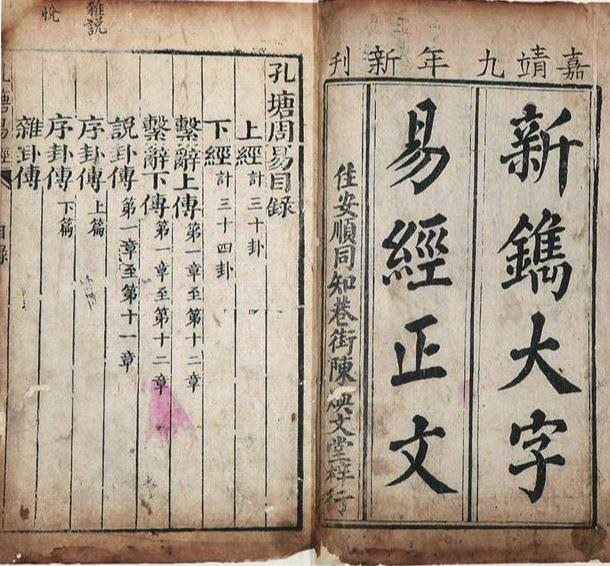 嘉靖九年新刊
新鐫大字
易經正文
住安順同知巷街陳文堂梓行
雜説
悅
孔塘周易目錄
上經 計三十卦
下經 計三十四卦
繫辭上傳 第一章至第十二章
繫辭下傳 第一章至第十二章
說卦傳 第一章至第十一章
序卦傳 上篇
序卦傳 下篇
雜卦傳
孔塘易經 目錄